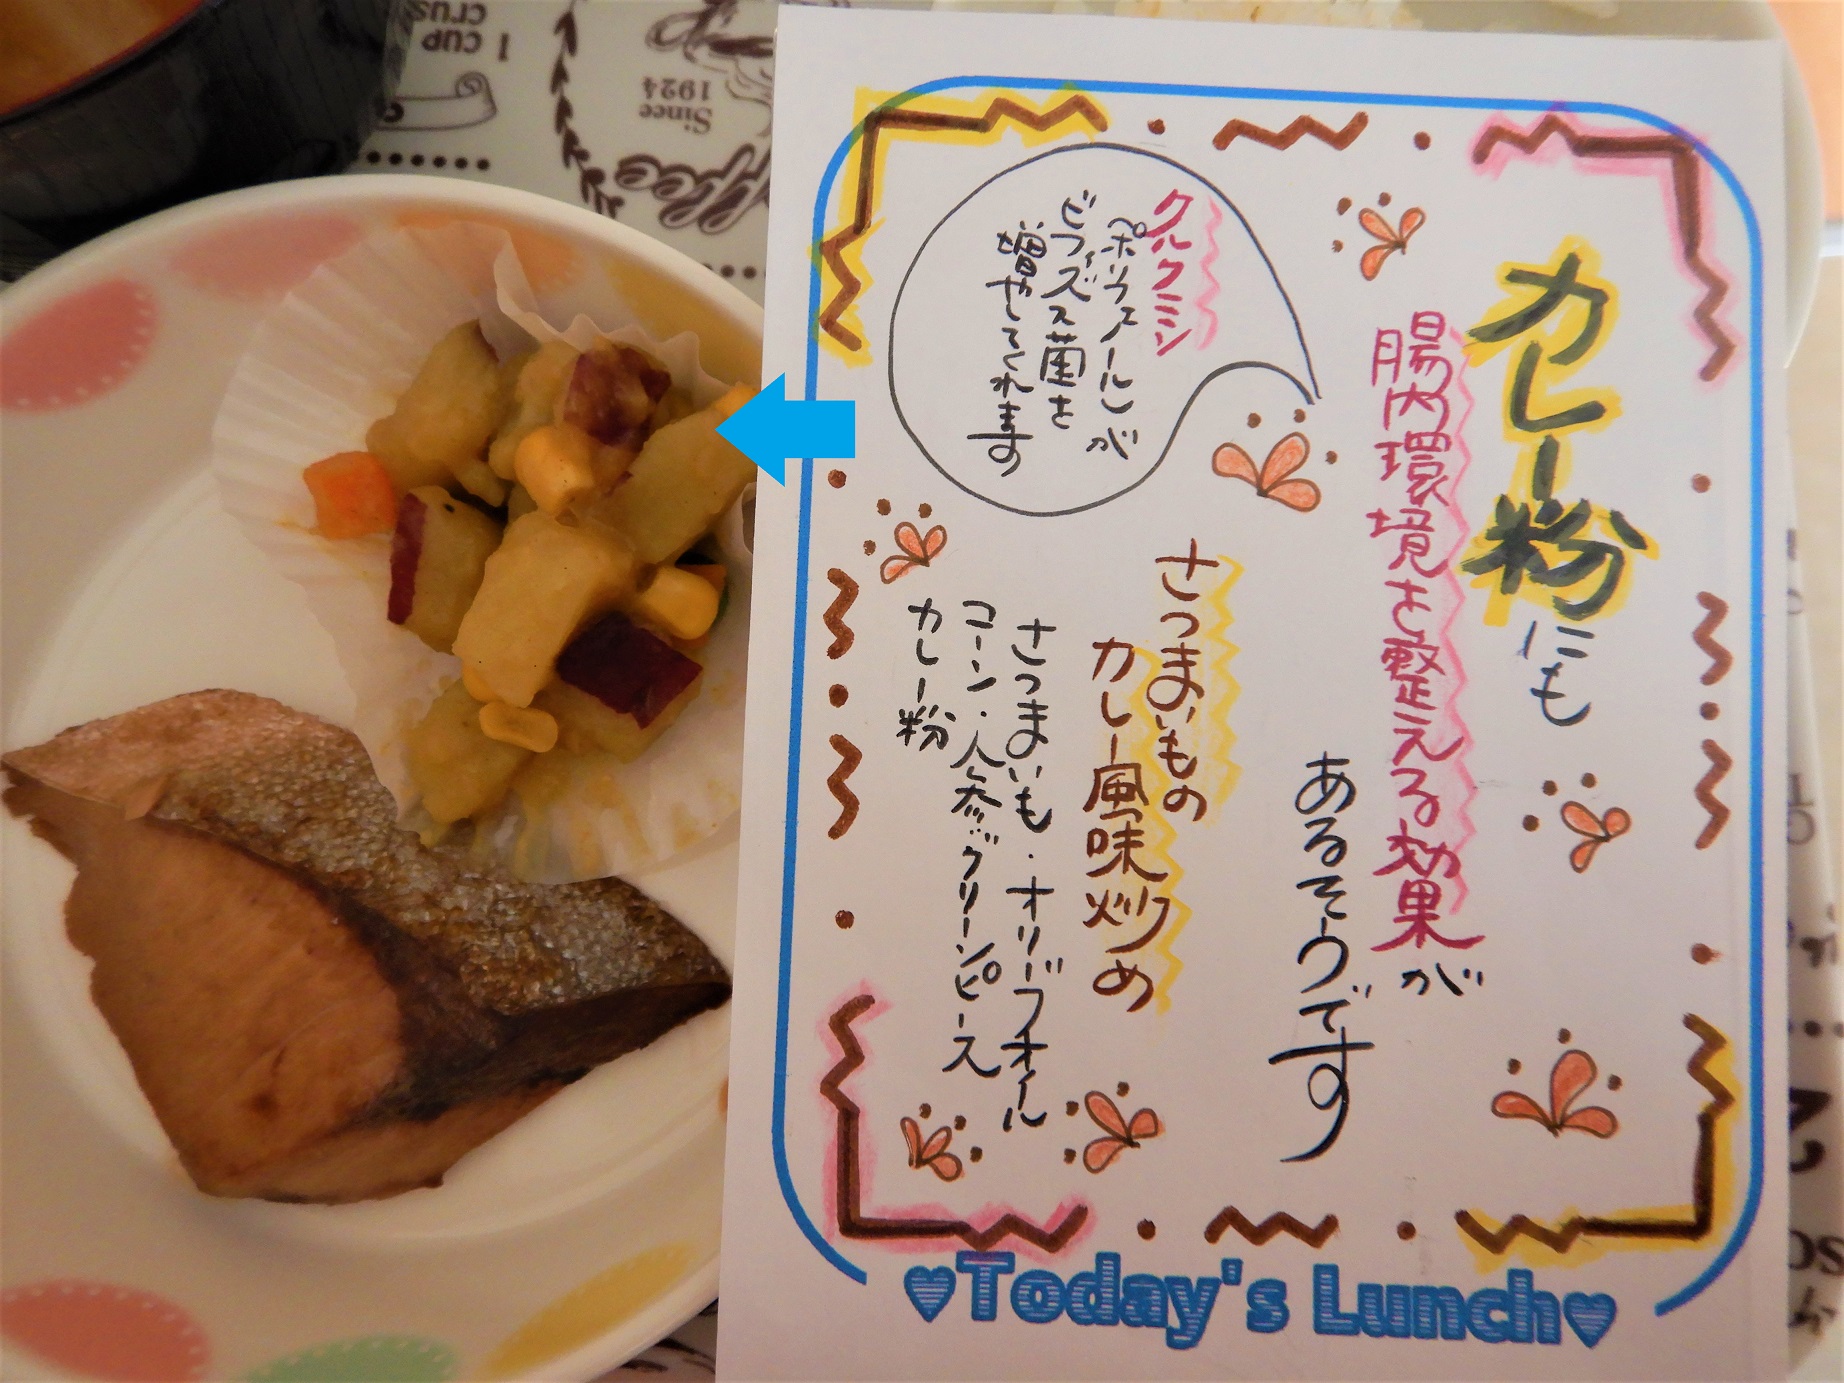 カレー粉にも
腸内環境を整える効果が
あるそうです
クルクミン
ポリフェノールが
ビフィズス菌を
増やしてくれます
さつまいもの
カレー風味炒め
さつまいも・オリーブオイル
コーン・人参・グリーンピース
カレー粉
♥Today's Lunch♥
1 CUP
CRUS
Since
1924